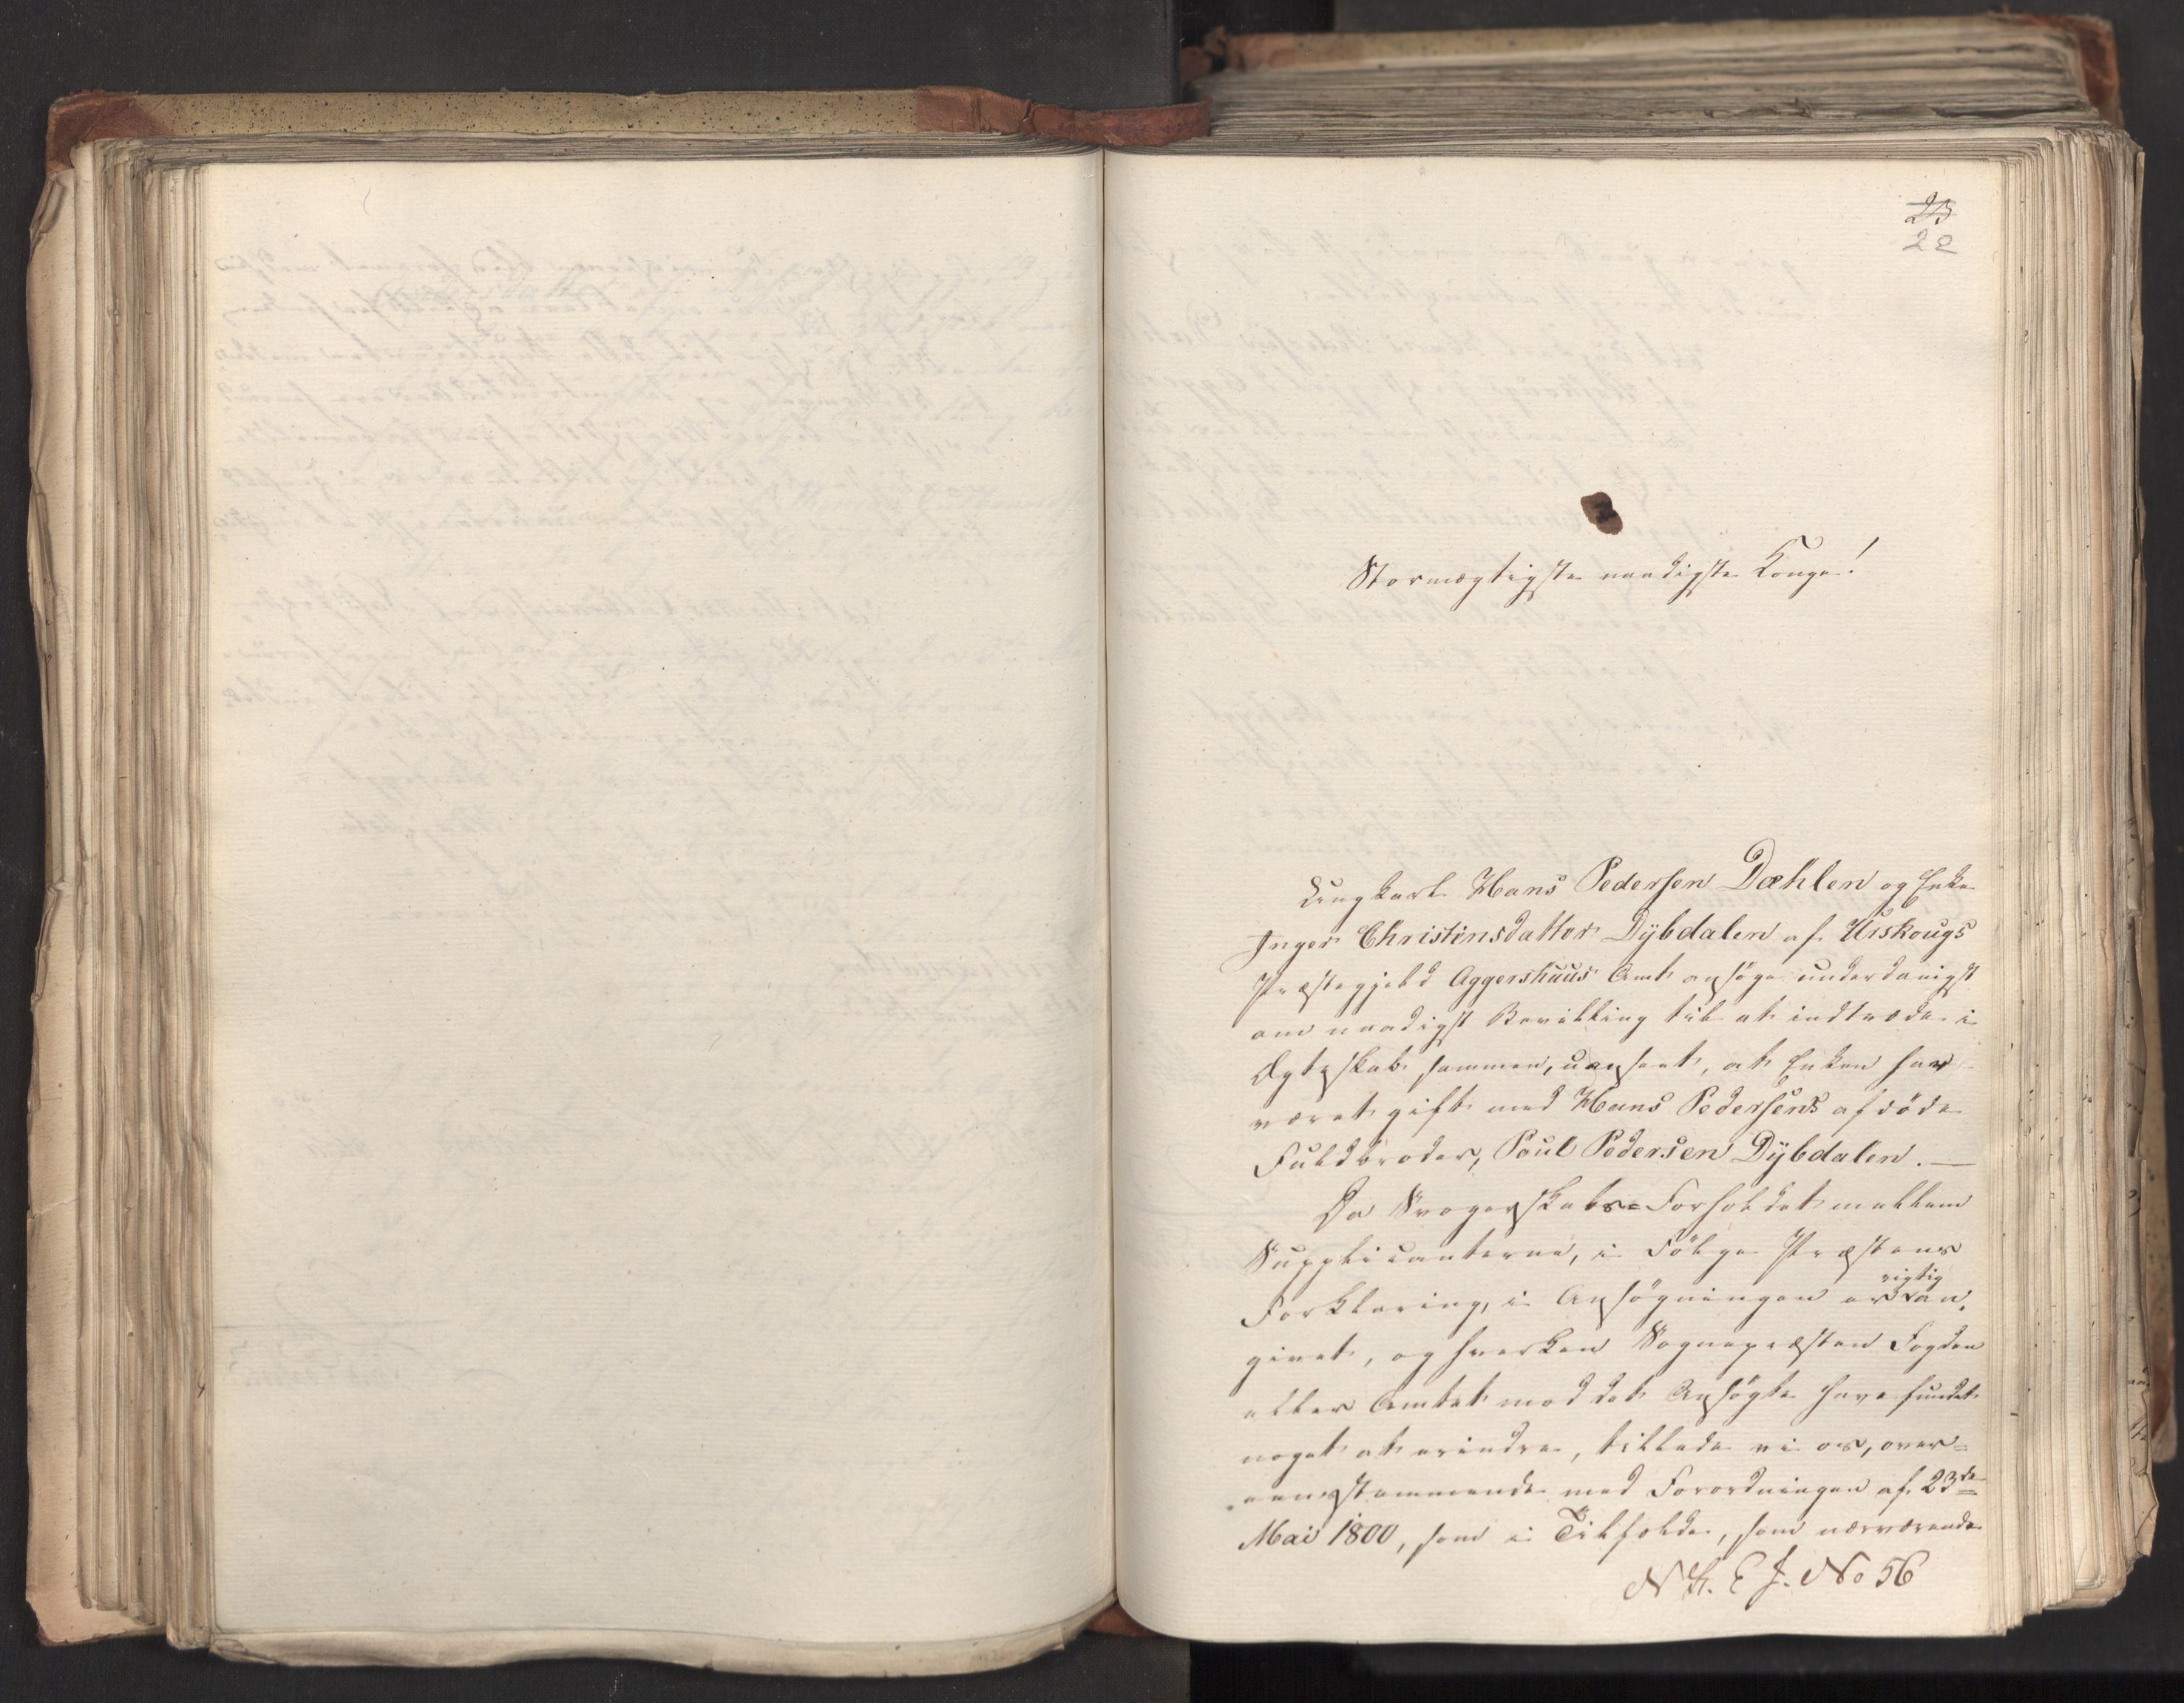 23
22
Stormægtigste naadigste Konge!
Ungkarl Hans Pedersen Dæhlen og Enke
Inger Christensdatter Dÿbdalen af Urskougs
Præstegjeld Aggershuus Amt ansøge underdanigst
om naadigst Bevilling til at indtræde i
Ægteskab sammen, uanseet, at Enken har
været gift med Hans Pedersens afdöde
Fuldbroder, Poul Pedersen Dÿbdalen. —
Da Svogerskabs=Forholdet mellem
Supplicanterne, i Fölge Præstens
Forklaring, i Ansögningen er rigtig an,
givet, og hverken Sognepræsten Fogden
eller Amtet mod det Ansögte have fundet
noget at erindre, tillade vi os, over=
eensstemmende med Forordningen af 23de
Mai 1800, som i Tilfælde, som nærværende
N. R. E J. No 56